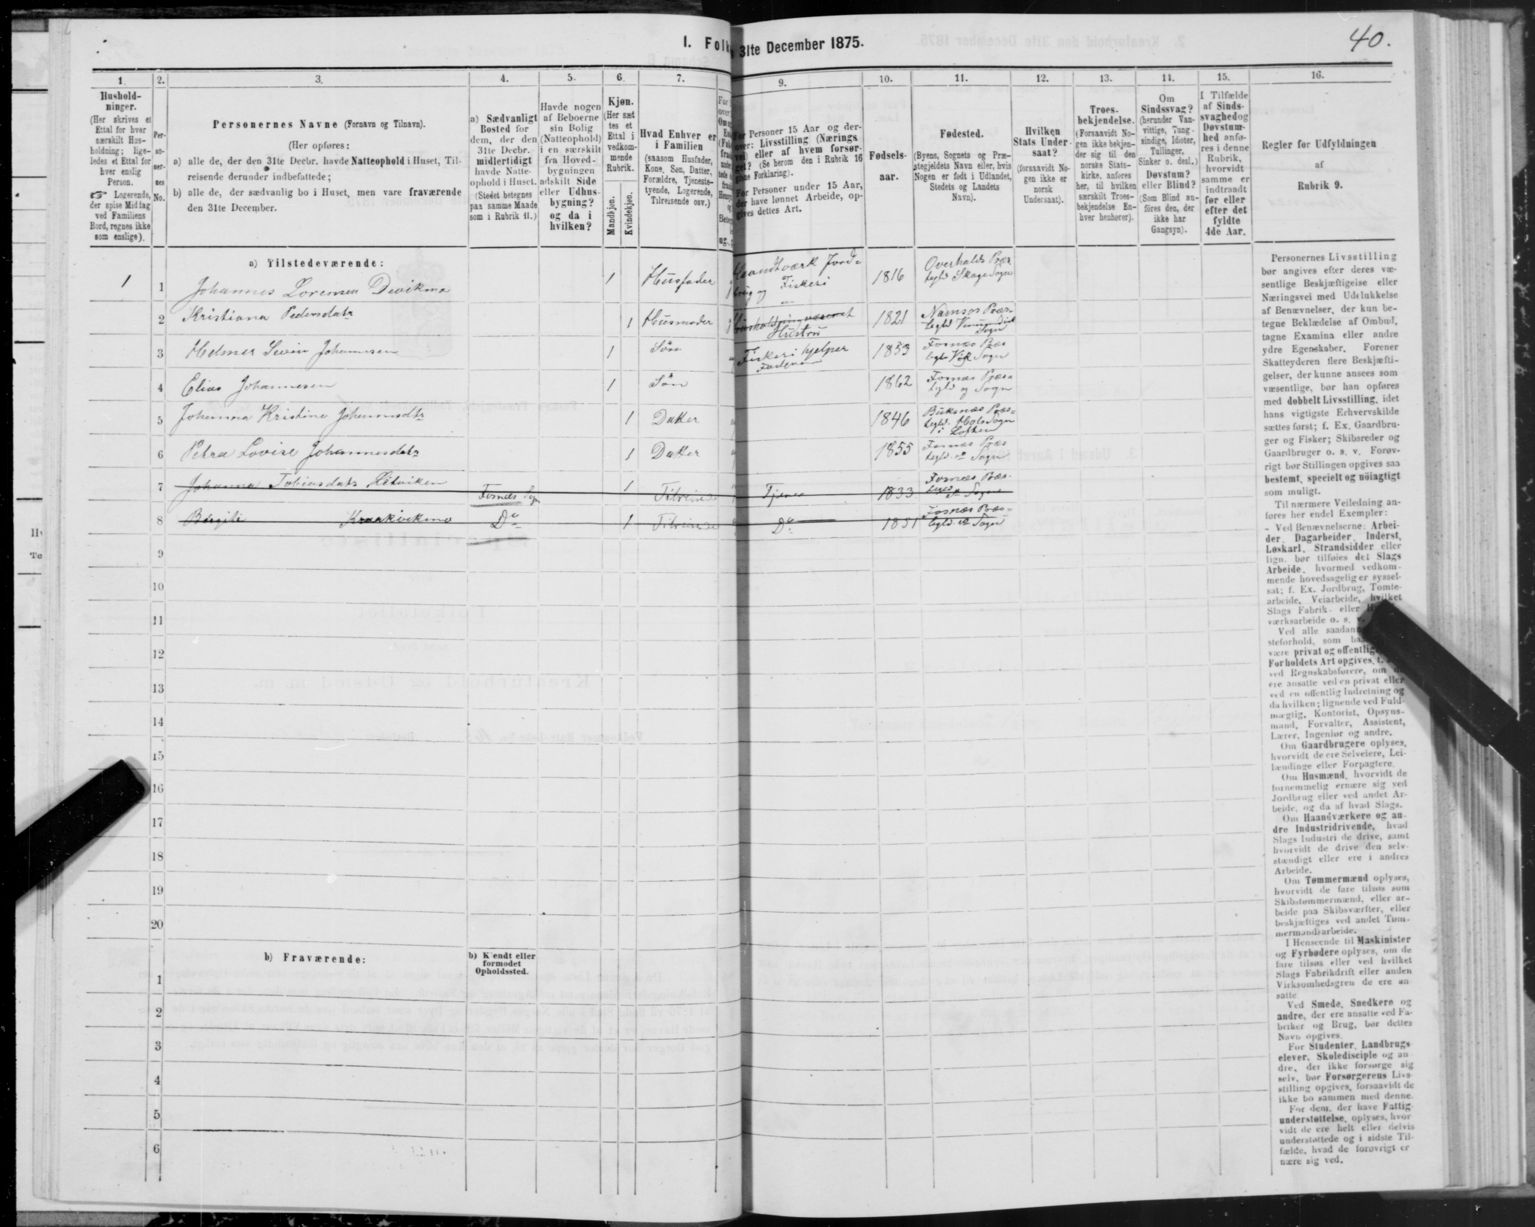 40.
I. Folk
31te December 1875.
1.
2.
3.
4.
5.
6.
7.
9.
10.
11.
12.
13.
14.
15.
16.
Hushold-
ninger.
(Her skrives et
Ettal for hver
særskilt Hus-
holdning; lige-
ledes et Ettal for
hver enslig
Person.
☞ Logerende,
der spise Middag
ved Familiens
Bord, regnes ikke
som enslige).
Per-
so-
ner-
nes
No.
Personernes Navne (Fornavn og Tilnavn).
(Her opføres:
a) alle de, der den 31te Decbr. havde Natteophold i Huset, Til-
reisende derunder indbefattede;
b) alle de, der sædvanlig bo i Huset, men vare fraværende
den 31te December.
a) Sædvanligt
Bosted for
dem, der den
31te Decbr.
midlertidigt
havde Natte-
ophold i Huset.
(Stedet betegnes
paa samme Maade
som i Rubrik 11.)
Havde nogen
af Beboerne
sin Bolig
(Natteophold)
i en særskilt
fra Hoved-
bygningen
adskilt Side
eller Udhus-
bygning?
og da i
hvilken?
Kjøn.
(Her sæt
tes et
Ettal i
vedkom-
mende
Rubrik.
Mandkjøn.
Kvindekjøn.
Hvad Enhver er
i Familien
(saasom Husfader,
Kone, Søn, Datter,
Forældre, Tjeneste-
tyende, Logerende,
Tilreisende osv.)
Personer 15 Aar og der-
over: Livsstilling (Nærings
vei) eller af hvem forsør-
get? (Se herom den i Rubrik 16
givne Forklaring).
For Personer under 15 Aar,
der have lønnet Arbeide, op-
gives dettes Art.
Fødsels-
aar.
Fødested.
(Byens, Sognets og Præ-
stegjeldets Navn eller, hvis
Nogen er født i Udlandet,
Stedets og Landets
Navn).
Hvilken
Stats Under-
saat?
(forsaavidt No-
gen ikke er
norsk
Undersaat).
Troes-
bekjendelse.
(Forsaavidt No-
gen ikke bekjen-
der sig til den
norske Stats-
kirke, anføres
her, til hvilken
særskilt Troes-
bekjendelse En-
hver henhører).
Om
Sindssvag?
(herunder Van-
vittige, Tung-
sindige, Idioter,
Tullinger,
Sinker o. desl.)
Døvstum?
eller Blind?
(Som Blind an-
føres den, der
ikke har
Gangsyn).
I Tilfælde
af Sinds-
svaghed og
Døvstum-
hed anfø-
res i denne
Rubrik,
hvorvidt
samme er
indtraadt
før eller
efter det
fyldte
4de Aar.
Regler for Udfyldningen
af
Rubrik 9.
a) Tilstedeværende:
1 1 Johannes Lorensen Devikmo 1 Husfader Haandtværk Jord-
brug og Fiskeri 1816 Overhalds Præs
tegld Skage Sogn
2 Kristiana Pedersdatr 1 Husmoder Hustru 1821 Namsos Præs-
tegld Sogn
3 Helmer Sevin Johannesen 1 Søn Fiskeri hjelper
Faderen 1853 Fosnæs Præs
tegld Vik Sogn
4 Elias Johannesen 1 Søn 1862 Fosnæs Præs-
tegld og Sogn
5 Johanna Kristine Johannesdtr 1 Datter 1846 Buksnæs Præs-
tegld. Hols Sogn
i Lofoten
6 Petra Lovise Johannesdatr 1 Datter 1855 Fosnæs Præs
tegld og Sogn
7 Johanna Tobiasdatr Fosnæs Sgn 1 Tilreisende Tjener 1833 Fosnæs Præs-
Sogn
8 Krakvikmo Do 1 Tilreisende Do 1851 Fosnæs Præs-
tegld og Sogn
9
10
11
12
13
14
15
16
17
18
19
20
b) Fraværende:
b) Kjendt eller
formodet
Opholdssted.
1
2
3
4
5
6
Personernes Livsstilling
bør angives efter deres væ-
sentlige Beskjæftigelse eller
Næringsvei med Udelukkelse
af Benævnelser, der kun be-
tegne Beklædelse af Ombud,
tagne Examina eller andre
ydre Egenskaber. Forener
Skatteyderen flere Beskjæfti-
gelser, der kunne ansees som
væsentlige, bør han opføres
med dobbelt Livsstilling, idet
hans vigtigste Erhvervskilde
sættes først; f. Ex. Gaardbru-
ger og Fisker; Skibsreder og
Gaardbruger o. s. v. Forøv-
rigt bør Stillingen opgives saa
bestemt, specielt og nøiagtigt
som muligt.
Til nærmere Veiledning an-
føres her endel Exempler:
- Ved Benævnelserne: Arbei-
der, Dagarbeider, Inderst,
Løskarl, Strandsidder eller
lign. bør tilføies det Slags
Arbeide, hvormed vedkom-
mende hovedsagelig er syssel-
sat; f. Ex. Jordbrug, Tomte-
arbeide, Veiarbeide, hvilket
Slags Fabrik- eller
værksarbeide o. s. v.
Ved alle saadan
steforhold, som
være privat og offentlig
Forholdets Art opgives,
ved Regnskabsførere, om
ere ansatte ved en privat eller
ved en offentlig Indretning og
da hvilken; lignende ved Fuld-
mægtig, Kontorist, Opsyns-
mand, Forvalter, Assistent,
Lærer, Ingeniør og andre.
Om Gaardbrugere oplyses,
hvorvidt de ere Selveiere, Lei-
lændinge eller Forpagtere.
Om Husmænd, hvorvidt de
fornemmelig ernære sig ved
Jordbrug eller ved andet Ar-
beide, og da af hvad Slags.
Om Haandværkere og an-
dre Industridrivende, hvad
Slags Industri de drive, samt
hvorvidt de drive den selv-
stændigt eller ere i andres
Arbeide.
Om Tømmermænd oplyses,
hvorvidt de fare tilsøs som
Skibstømmermænd, eller ar-
beide paa Skibsværfter, eller
beskjæftiges ved andet Tøm-
mermandsarbeide.
I Henseende til Maskinister
og Fyrbødere oplyses, om de
fare tilsøs eller ved hvilket
Slags Fabrikdrift eller anden
Virksomhedsgren de ere an-
satte.
Ved Smede, Snedkere og
andre, der ere ansatte ved Fa-
briker og Brug, bør dettes
Navn opgives.
For Studenter, Landbrugs-
elever, Skoledisciple og an-
dre, der ikke forsørge sig
selv, bør Forsørgerens Livs-
stilling opgives, forsaavidt de
ikke bo sammen med denne.
For dem, der have Fattig-
understøttelse, oplyses, hvor-
vidt de ere helt eller delvis
understøttede og i sidste Til-
fælde, hvad de forøvrigt er
nære sig ved.